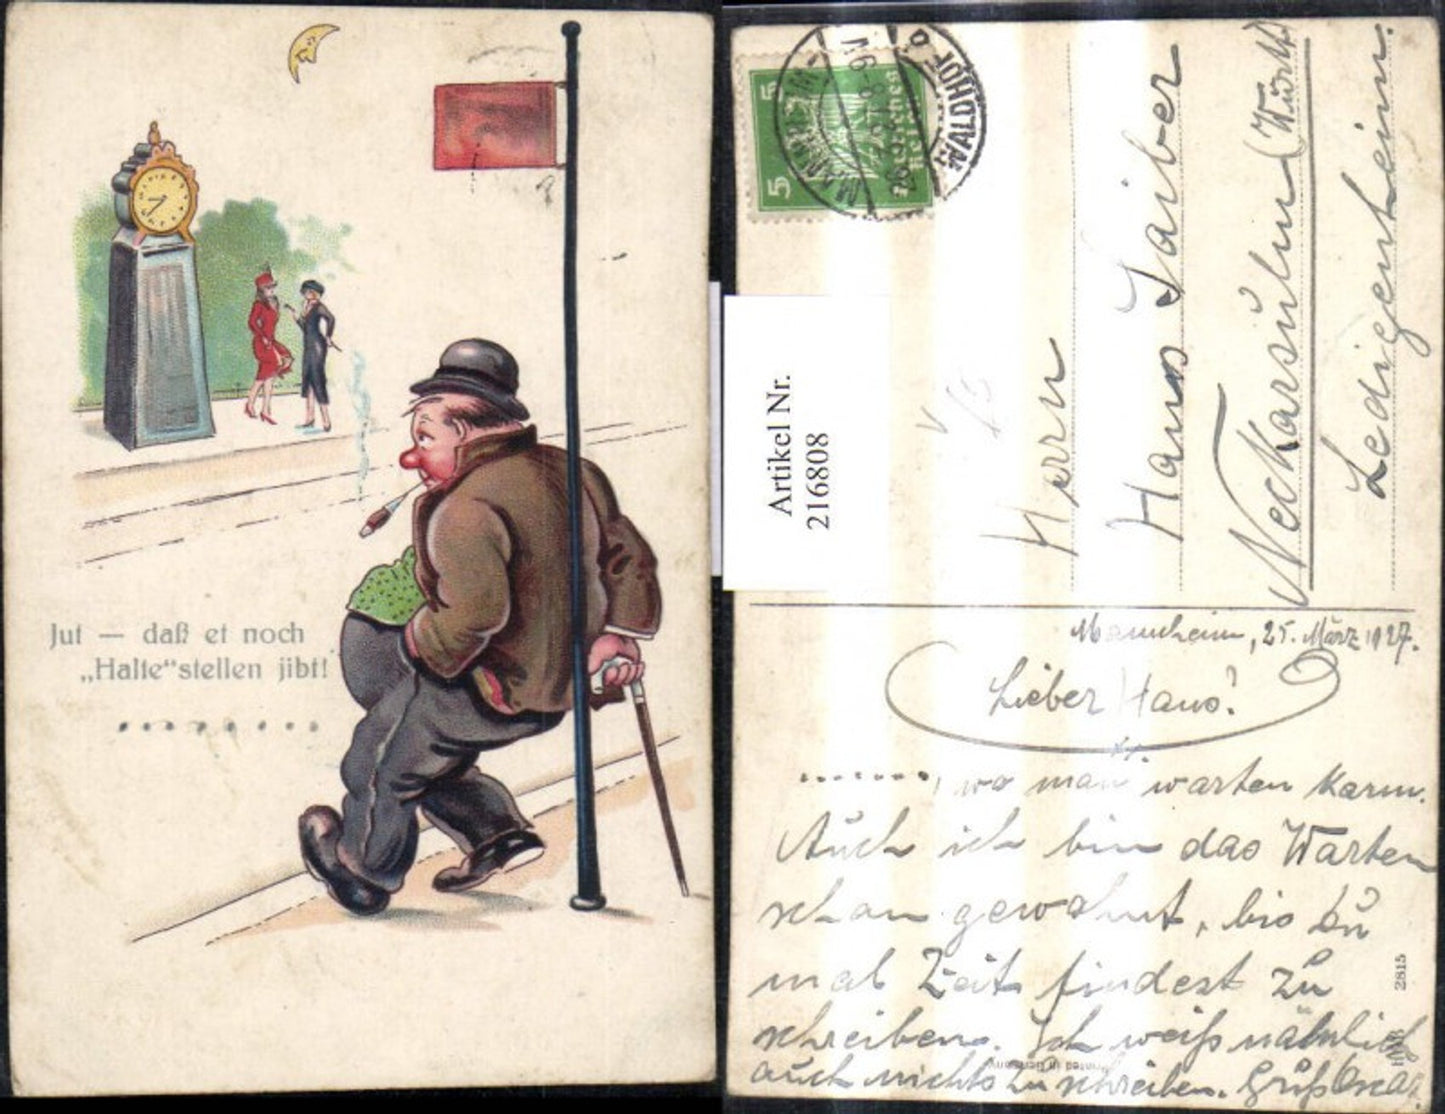 Jut — daß et noch
„Halte“stellen jibt!
Artikel Nr.
216808
5
5
Deutsches Reich
MANNHEIM-
WALDHOF
26.3.27.8-9 N
Herrn
Hans Laiber
Neckarsulm (Württ)
Ledigenheim.
Mannheim, 25. März 1927.
Lieber Hans!
........, wo man warten kann.
Auch ich bin das Warten
schon gewohnt, bis Du
mal Zeit findest zu
schreiben. Ich weiß nämlich
auch nichts zu schreiben. Gruß Oscar.
Printed in Germany
2815